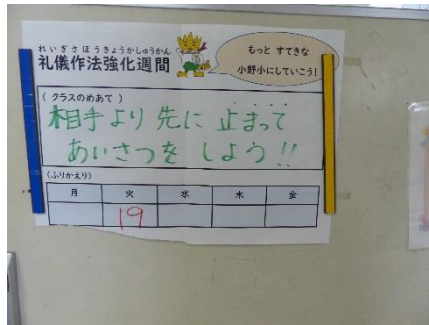 れいぎさほうきょうかしゅうかん
礼儀作法強化週間
もっと すてきな
小野小にしていこう!
(クラスのめあて)
相手より先に 止まって
あいさつを しよう!!
(ふりかえり)
月 火 水 木 金
19